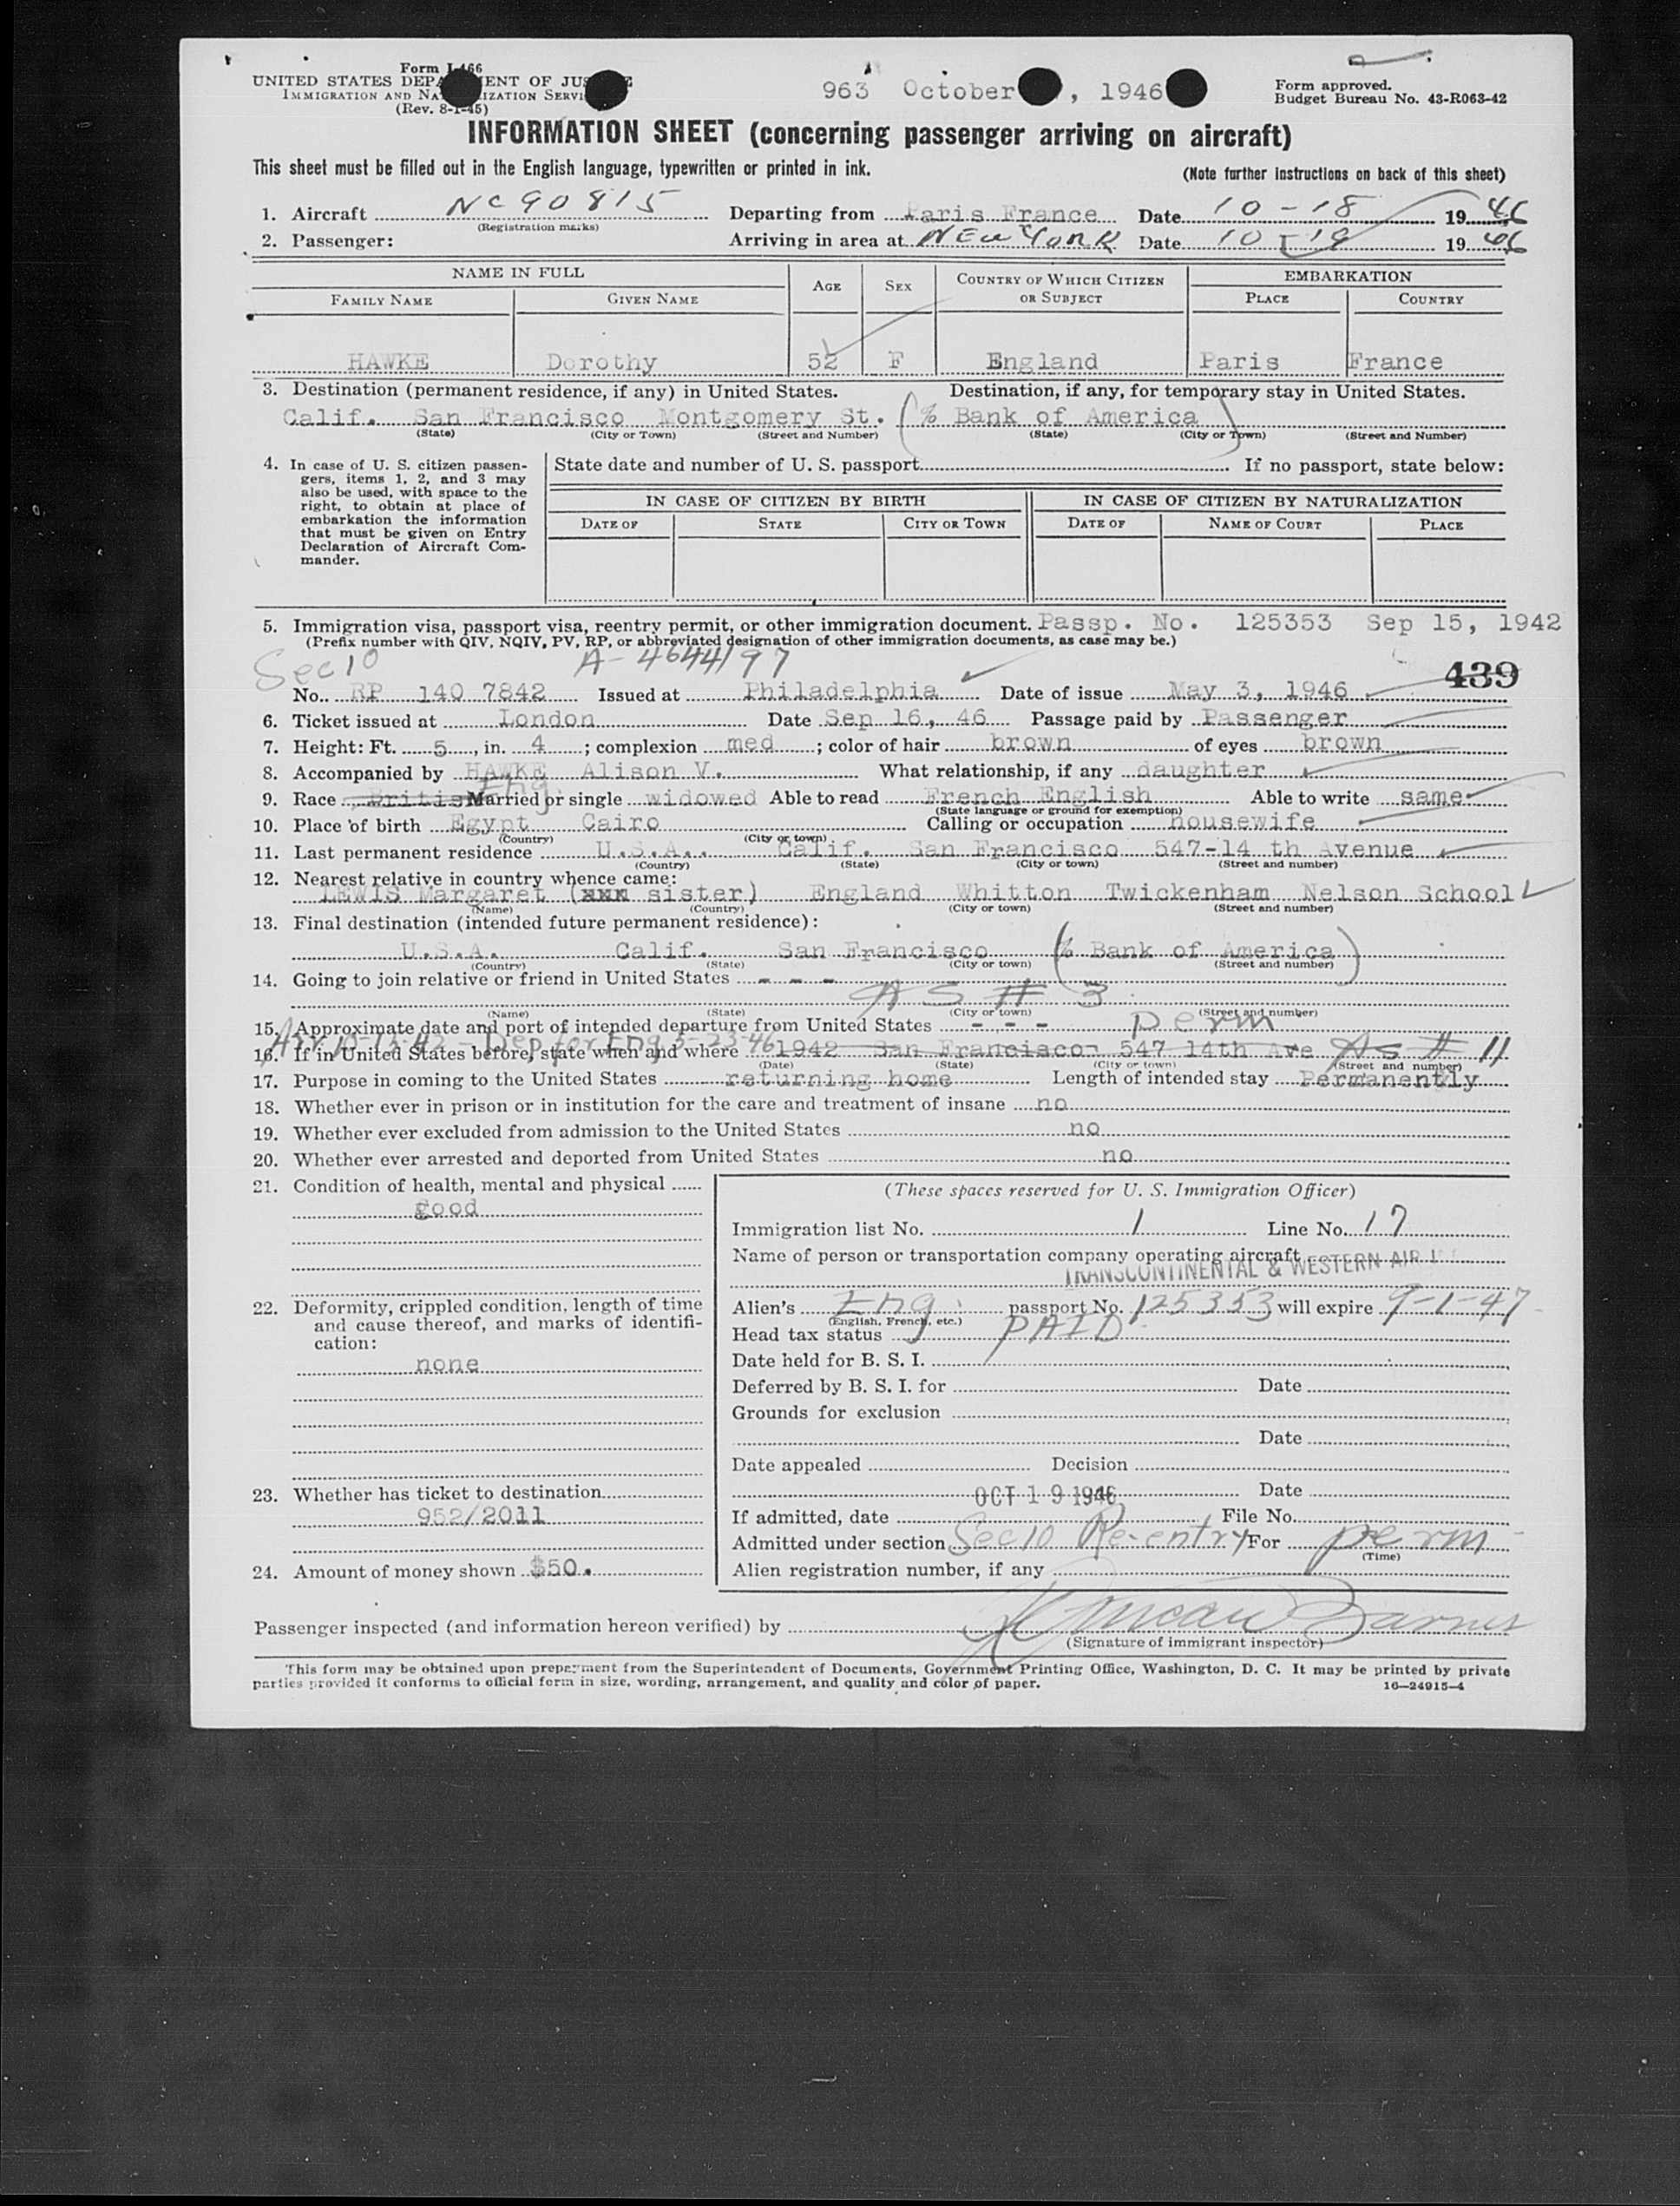 Form I-466
UNITED STATES DEPARTMENT OF JUSTICE
IMMIGRATION AND NATURALIZATION SERVICE
(Rev. 8-1-45)
963 October , 1946
Form approved.
Budget Bureau No. 43-R063-42
INFORMATION SHEET (concerning passenger arriving on aircraft)
This sheet must be filled out in the English language, typewritten or printed in ink.
(Note further instructions on back of this sheet)
1. Aircraft NC90815 Departing from Paris France Date 10-18 1946
(Registration marks)
2. Passenger: Arriving in area at NEW YORK Date 10-19 1946
NAME IN FULL AGE SEX COUNTRY OF WHICH CITIZEN OR SUBJECT EMBARKATION
FAMILY NAME GIVEN NAME PLACE COUNTRY
HAWKE Dorothy 52 F England Paris France
3. Destination (permanent residence, if any) in United States. Destination, if any, for temporary stay in United States.
Calif. San Francisco Montgomery St. (% Bank of America)
(State) (City or Town) (Street and Number) (State) (City or Town) (Street and Number)
4. In case of U. S. citizen passengers, items 1, 2, and 3 may also be used, with space to the right, to obtain at place of embarkation the information that must be given on Entry Declaration of Aircraft Commander.
State date and number of U. S. passport If no passport, state below:
IN CASE OF CITIZEN BY BIRTH IN CASE OF CITIZEN BY NATURALIZATION
DATE OF STATE CITY OR TOWN DATE OF NAME OF COURT PLACE
5. Immigration visa, passport visa, reentry permit, or other immigration document. Passp. No. 125353 Sep 15, 1942
(Prefix number with QIV, NQIV, PV, RP, or abbreviated designation of other immigration documents, as case may be.)
Sec 10 A-4644197 439
No. RP 140 7842 Issued at Philadelphia Date of issue May 3, 1946
6. Ticket issued at London Date Sep 16, 46 Passage paid by Passenger
7. Height: Ft. 5, in. 4; complexion med; color of hair brown of eyes brown
8. Accompanied by HAWKE Alison V. What relationship, if any daughter
Eng
9. Race British Married or single widowed Able to read French English Able to write same
(State language or ground for exemption)
10. Place of birth Egypt Cairo Calling or occupation housewife
(Country) (City or town)
11. Last permanent residence U.S.A. Calif. San Francisco 547-14 th Avenue
(Country) (State) (City or town) (Street and number)
12. Nearest relative in country whence came:
LEWIS Margaret (xxx sister) England Whitton Twickenham Nelson School
(Name) (Country) (City or town) (Street and number)
13. Final destination (intended future permanent residence):
U.S.A. Calif. San Francisco (% Bank of America)
(Country) (State) (City or town) (Street and number)
14. Going to join relative or friend in United States - - -
AS # 3
(Name) (State) (City or town) (Street and number)
15. Approximate date and port of intended departure from United States - - - perm
Arr 10-13-42 - Dep for Eng 5-23-46
16. If in United States before, state when and where 1942 San Francisco- 547 14th Ave AS # 11
(Date) (State) (City or town) (Street and number)
17. Purpose in coming to the United States returning home Length of intended stay Permanently
18. Whether ever in prison or in institution for the care and treatment of insane no
19. Whether ever excluded from admission to the United States no
20. Whether ever arrested and deported from United States no
21. Condition of health, mental and physical
good
22. Deformity, crippled condition, length of time and cause thereof, and marks of identification:
none
23. Whether has ticket to destination
952/2011
24. Amount of money shown $50.
(These spaces reserved for U. S. Immigration Officer)
Immigration list No. 1 Line No. 17
Name of person or transportation company operating aircraft
TRANSCONTINENTAL & WESTERN AIR
Alien's Eng. passport No. 125353 will expire 9-1-47
(English, French, etc.)
Head tax status PAID
Date held for B. S. I.
Deferred by B. S. I. for Date
Grounds for exclusion
Date
Date appealed Decision
Date
If admitted, date OCT 19 1946 File No.
Admitted under section Sec 10 Re-entry For perm
(Time)
Alien registration number, if any
Passenger inspected (and information hereon verified) by Barnes
(Signature of immigrant inspector)
This form may be obtained upon prepayment from the Superintendent of Documents, Government Printing Office, Washington, D. C. It may be printed by private
parties provided it conforms to official form in size, wording, arrangement, and quality and color of paper.
16—24915-4